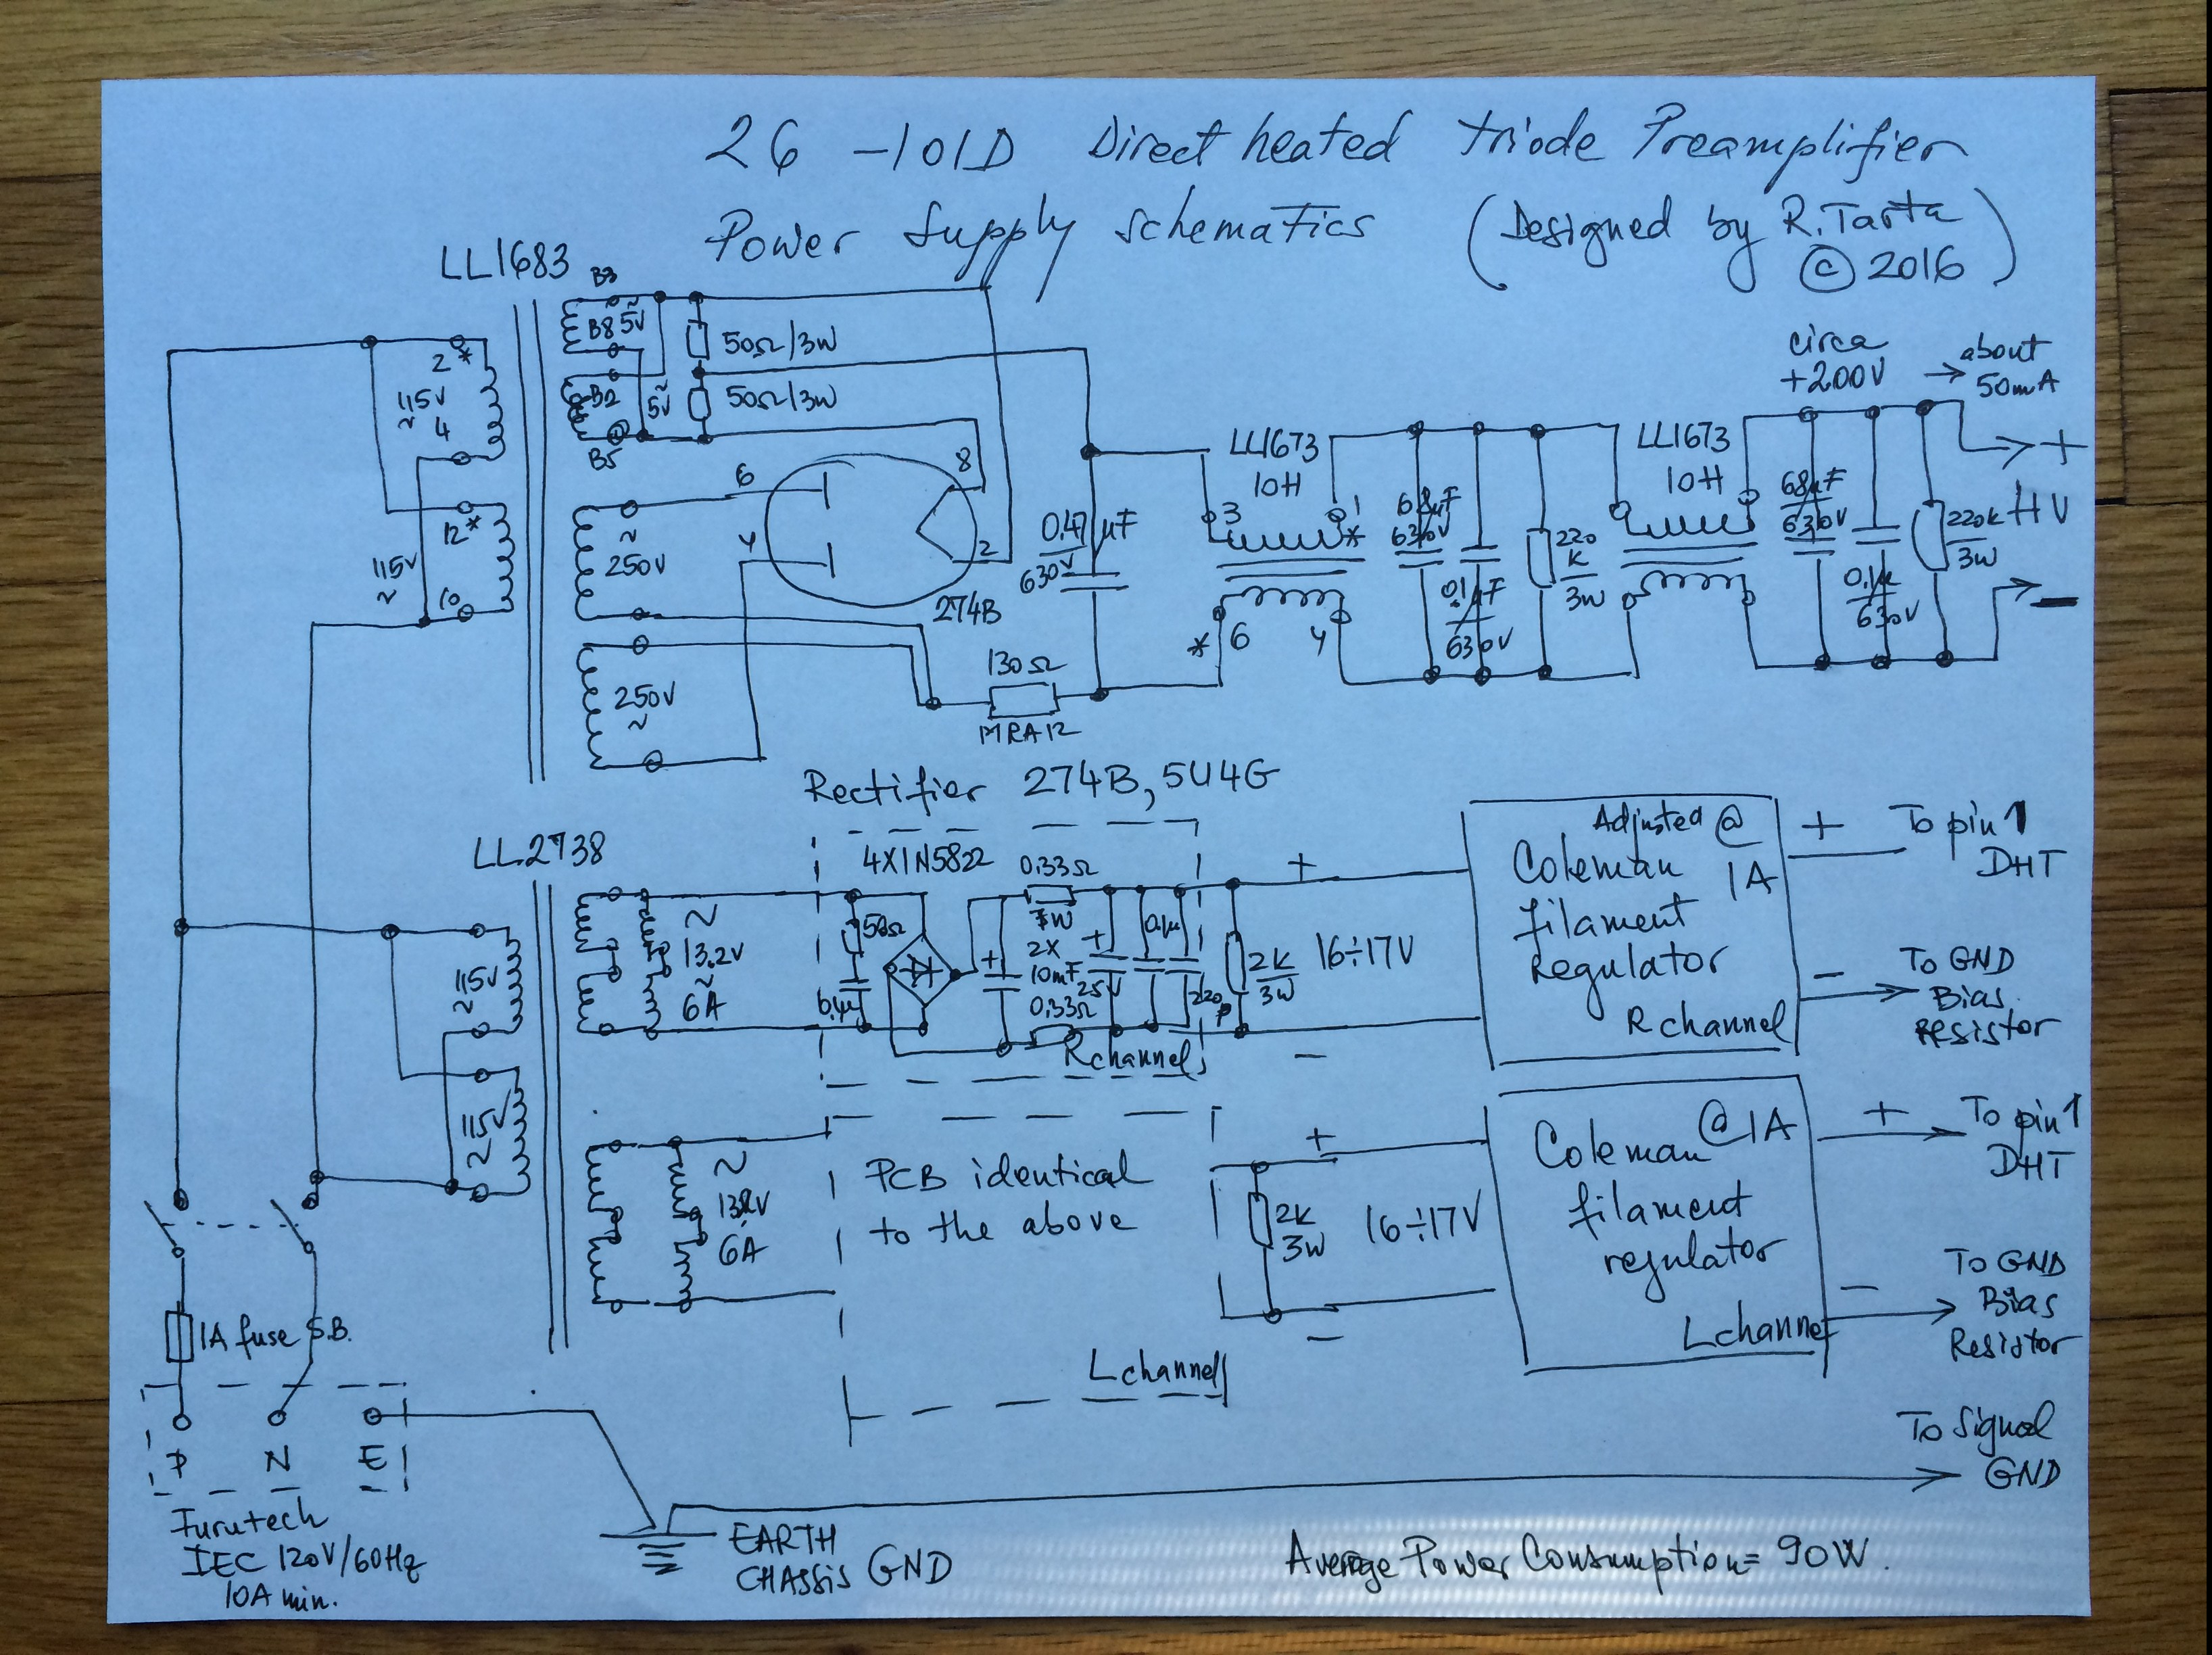 26 -101D Direct heated triode Preamplifier
Power Supply schematics (Designed by R.Tarta
© 2016)
LL1683
B3
B8 5V
~
B2
5V
~
B5
50Ω/3W
50Ω/3W
2*
115V
~
4
12*
115V
~
10
~
250V
250V
~
6
4
8
2
274B
0.47 µF
630V
130Ω
MRA12
LL1673
10H
3
1
*
* 6
4
68µF
630V
0.1µF
630V
220
K
3W
LL1673
10H
68µF
630V
0.1µ
630V
220K
3W
circa
+200V
→ about
50mA
+
HV
−
Rectifier 274B, 5U4G
LL2738
115V
~
115V
~
~
13.2V
~
6A
4X1N5822
50Ω
0.1µ
+
0.33Ω
7W
2X
10mF
25V
0.33Ω
+
0.1µ
220p
R channel
2K
3W
+
16÷17V
−
Adjusted @
Coleman 1A
filament
Regulator
R channel
+ To pin 1
DHT
− To GND
Bias
Resistor
~
13.2V
6A
PCB identical
to the above
L channel
+
2K
3W
16÷17V
−
Coleman @ 1A
filament
regulator
L channel
+ To pin 1
DHT
− To GND
Bias
Resistor
1A fuse S.B.
P N E
Furutech
IEC 120V/60Hz
10A min.
EARTH
CHASSIS GND
To Signal
GND
Average Power Consumption = 90W.